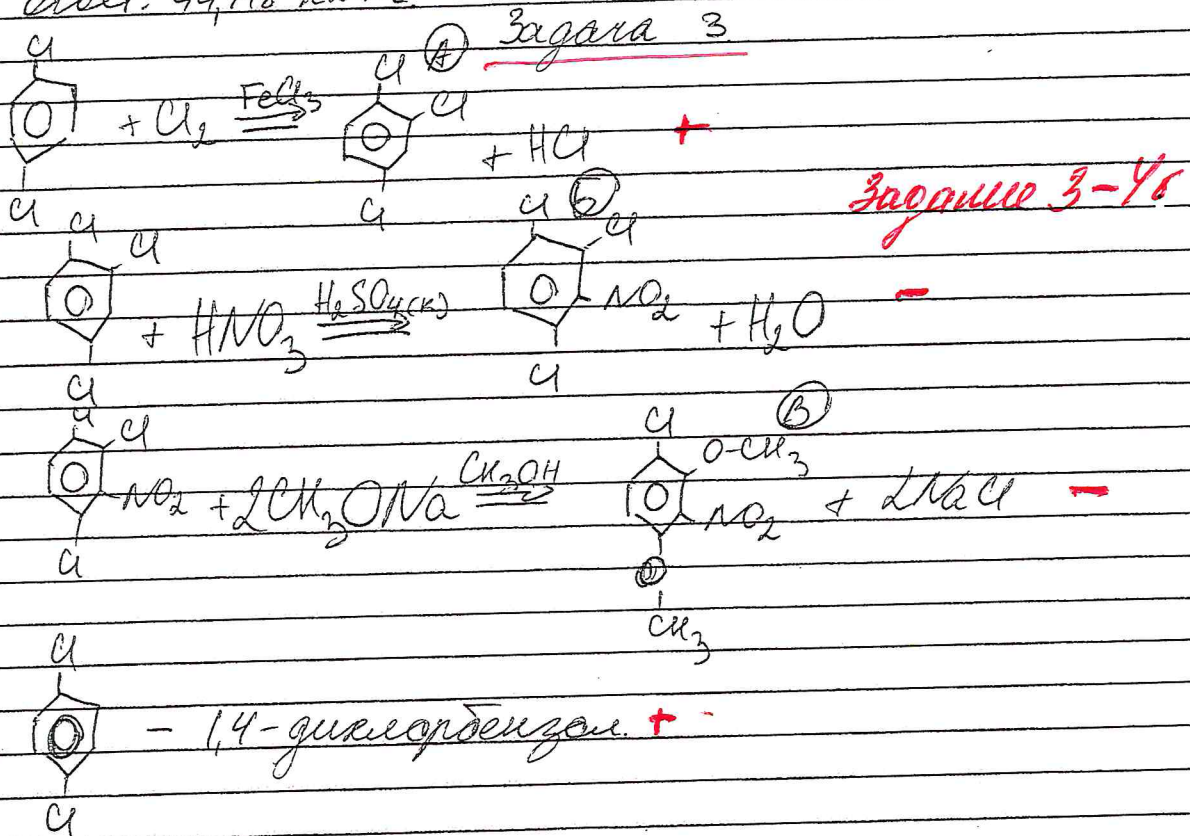 Ответ:
Задача 3
Cl
Cl
+ Cl₂ FeCl₃
Cl (А)
Cl
Cl
+ HCl +
Задание 3-4б
Cl
Cl
Cl
+ HNO₃ H₂SO₄(к)
Cl (Б)
Cl
NO₂
Cl
+ H₂O -
Cl
Cl
NO₂
Cl
+ 2CH₃ONa CH₃OH
Cl (В)
O-CH₃
NO₂
O
CH₃
+ 2NaCl -
Cl
Cl
- 1,4-дихлорбензол. +